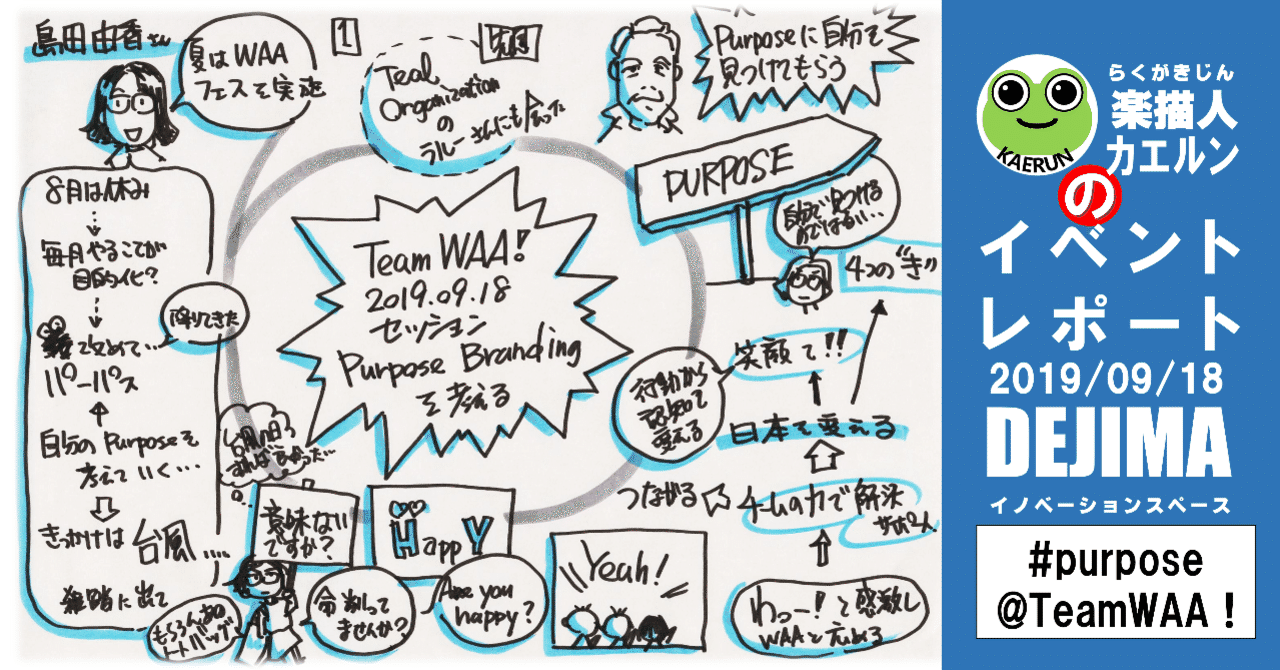 島田由香さん
夏はWAA
フェスを実施
1
Teal
Organization
の
ラルーさんにも会った
Purposeに自分を
見つけてもらう
PURPOSE
自分で見つける
のではない…
4つの"き"
8月は休み
毎月やることが
目的化?
で改めて…
パーパス
降りてきた
自分のPurposeを
考えていく…
きっかけは
台風....
雑踏に出て
Team WAA!
2019.09.18
セッション
Purpose Branding
を考える
行動から
認知を
変える
笑顔で!!
日本を変える
つながる
チームの力で解決
わっー!と感激し
WAAと広める
意味ない
ですか?
HappY
命削って
ませんか?
Are you
happy?
Yeah!
らくがきじん
楽描人
カエルン
KAERUN
の
イベント
レポート
2019/09/18
DEJIMA
イノベーションスペース
#purpose
@TeamWAA!